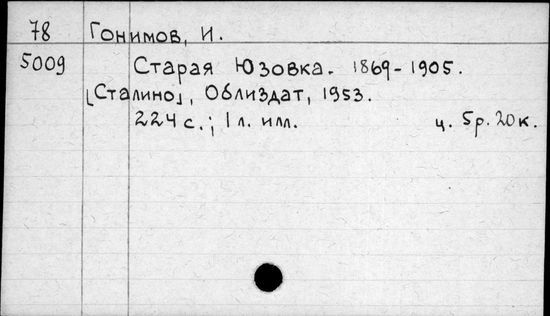 78 Гонимов, И.
5009 Старая Юзовка. 1869-1905.
[Сталино], Облиздат, 1953.
224 с.; 1 л. илл. ц. 5р. 20к.